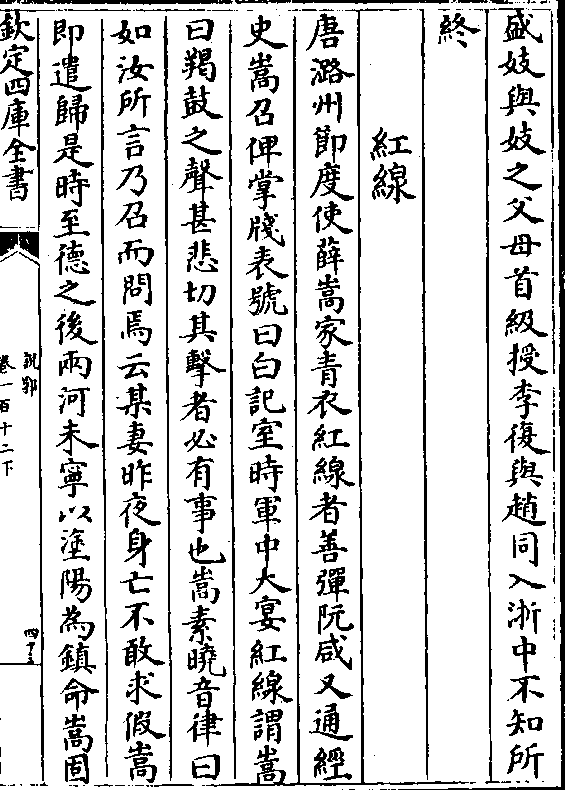 盛妓與妓之父母首級授李復與趙同入浙中不知所
終
紅線
唐潞州節度使薛嵩家青衣紅線者善彈阮咸又通經
史嵩召俾掌牋表號曰白記室時軍中大宴紅線謂嵩
曰羯鼓之聲甚悲切其擊者必有事也嵩素曉音律曰
如汝所言乃召而問焉云某妻昨夜身亡不敢求假嵩
即遣歸是時至德之後兩河未寧以塗陽為鎮命嵩固
欽定四庫全書
說郛
卷一百十二下